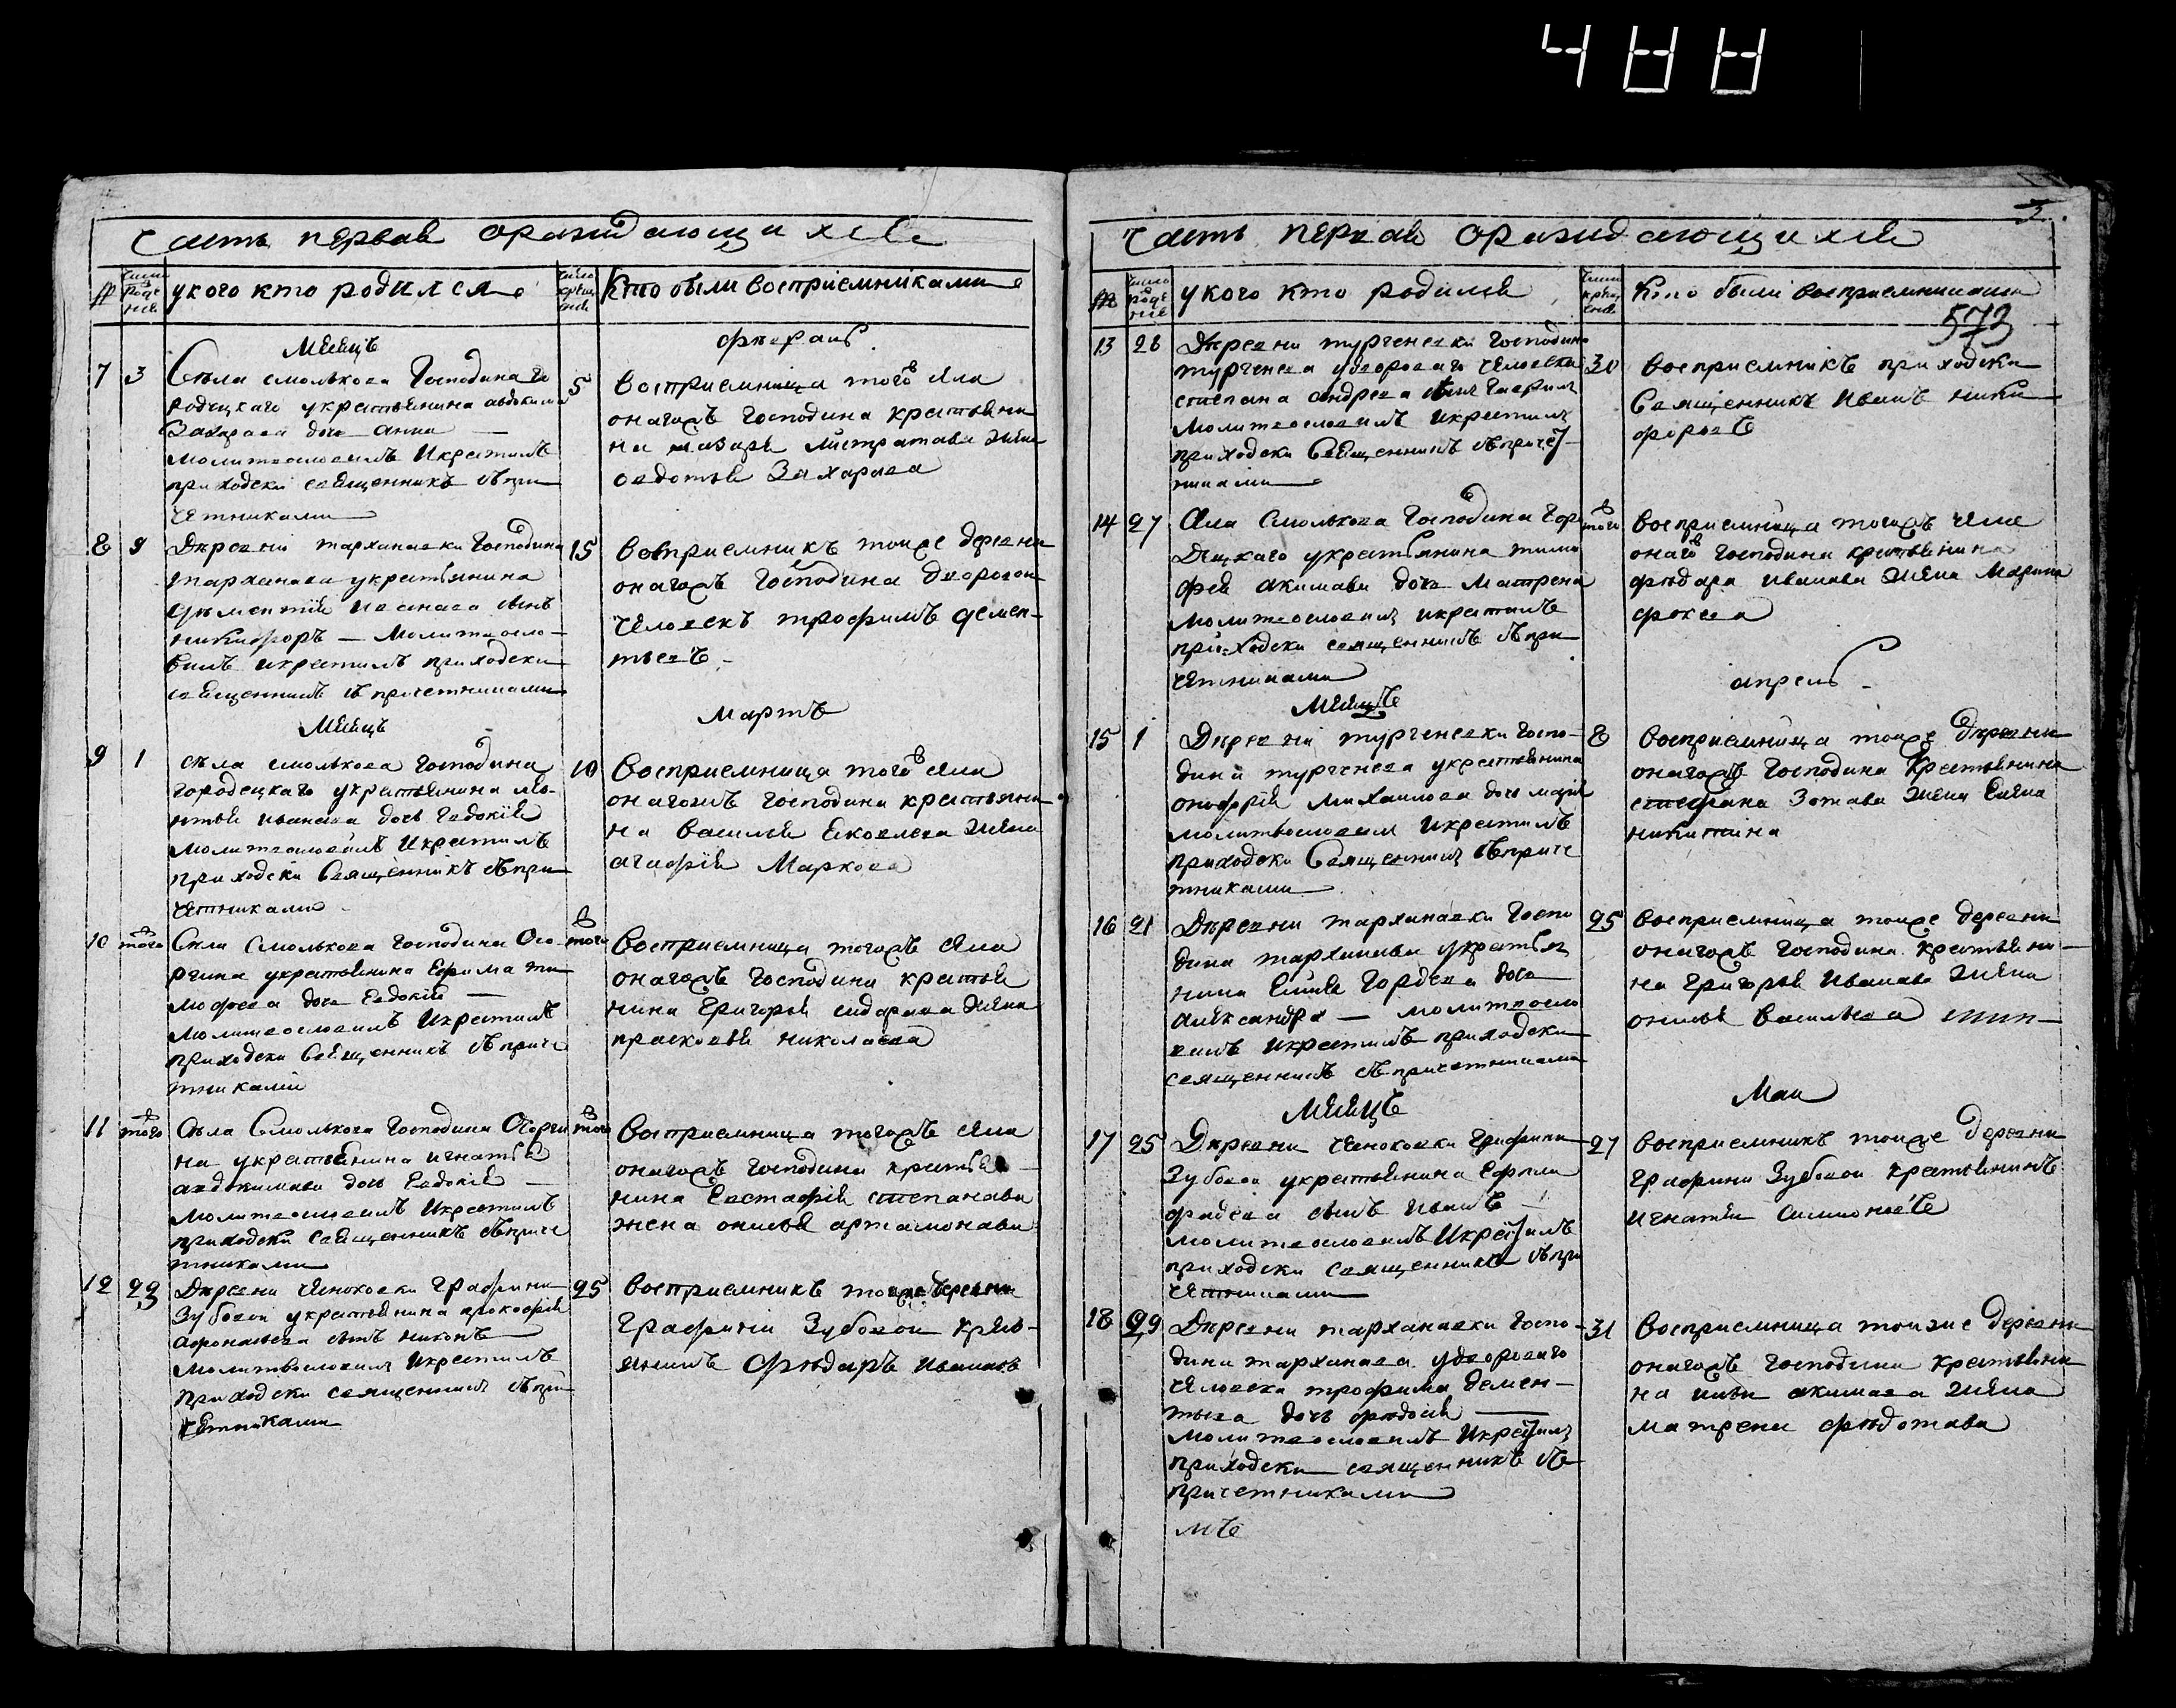 488
Часть первая ораждающихся
№
число роде ния
укого кто родился
число креще ния
Кто были восприемниками
Месяцъ
февраль
7
3
Села смолькова Господина Го
родецкаго укрестьянина авдокима
Захарава дочь Анна —
молитвословилъ Икрестилъ
приходски священникъ съпри
четниками
5
восприемница того села
онагожъ Господина крестьяни
на назаря листратава жена
федотья Захарава
8
9
Деревни тарханавки Господина
тарханава укрестьянина
дементия иванава сынъ
никифоръ — Молитвосло-
вилъ икрестилъ приходски
священникъ съпричетниками
15
восприемникъ тоиже деревни
онагожъ Господина дворовои
человекъ трофимъ демен-
тьевъ
Месяцъ
Мартъ
9
1
села смолькова Господина
городецкаго укрестьянина ле-
онтья иванава дочь Евдокия
молитвословилъ Икрестилъ
приходски Священникъ съпри
четниками
10
восприемница того села
онагожъ Господина крестьяни
на василья Яковлева жена
агафия Маркова
10
того
Села Смолькова Господина Ого-
ргина укрестьянина Ефима ти
мофеева дочь Евдокия —
молитвословилъ Икрестилъ
приходски Священникъ съприче
тниками
того
восприемница тогожъ села
онагожъ Господина крестья
нина Григорья сидарава жена
прасковья николаева
11
того
Села Смолькова Господина Огорги
на укрестьянина игнатья
авдокимава дочь Евдокия —
молитвословилъ Икрестилъ
приходски священникъ съприче
тниками
того
восприемница тогожъ села
онагожъ Господина крестья
нина Евстафия степанава
жена онисья артамонава
12
23
Деревни Ченоковки Графини
Зубовои укрестьянина прокофия
афонасьева сынъ никонъ
молитвословилъ Икрестилъ
приходски священникъ съпри
четниками
25
восприемникъ тоиже деревни
Графини Зубовои крест-
янинъ Федаръ Иванавъ
3
Часть первая ораждающихся
№
число роде ние
укого кто родился
число крещ ения
Кто были восприемниками
573
13
28
Деревни тургеневки Господина
тургенева удворовага человека
степана андреева сынъ Гаврилъ
молитвословилъ икрестилъ
приходски Священникъ съпричет
никами
30
восприемникъ приходски
Священникъ Иванъ ники
форовъ
14
27
Села Смолькова Господина Горо
децкаго укрестьянина тимо
фея акимава дочь Матрена
молитвословилъ икрестилъ
приходски священникъ съпри
четниками
того
восприемница тогожъ села
онаго Господина крестьянина
федара иванава жена Марина
фокеева
Месяцъ
апрель
15
1
Деревни тургеневки Госпо-
дина тургенева укрестьянина
онофрия михаилова дочь мария
молитвословил Икрестилъ
приходски Священникъ съприче
тниками
8
восприемница тоиже деревни
онагожъ Господина Крестьянина
стефана Зотава жена Елена
никитина
16
21
Деревни тарханавки Госпо
дина тарханава укрестья
нина Елисея Гордеева дочь
Александра — молитвосло
вилъ икрестилъ приходски
священникъ съпричетниками
25
восприемница тоиже деревни
онагожъ Господина крестьяни-
на Григорья Иванава жена
онисья васильева
Месяцъ
Маи
17
25
Деревни Ченоковки Графини
Зубовои укрестьянина Ефима
фадеева сынъ Иванъ —
молитвословилъ Икрестилъ
приходски священникъ съпри
четниками
27
восприемникъ тоиже деревни
Графини Зубовои крестьянинъ
Игнатеи Симионовъ
18
29
Деревни тарханавки Госпо-
дина тарханава удвороваго
человека трофима демен-
тьева дочь федосья
молитвословилъ Икрестилъ
приходски священникъ съ
причетниками
31
восприемница тоиже деревни
онагожъ Господина крестьяни
на ильи акимава жена
матрена федотава
мъ